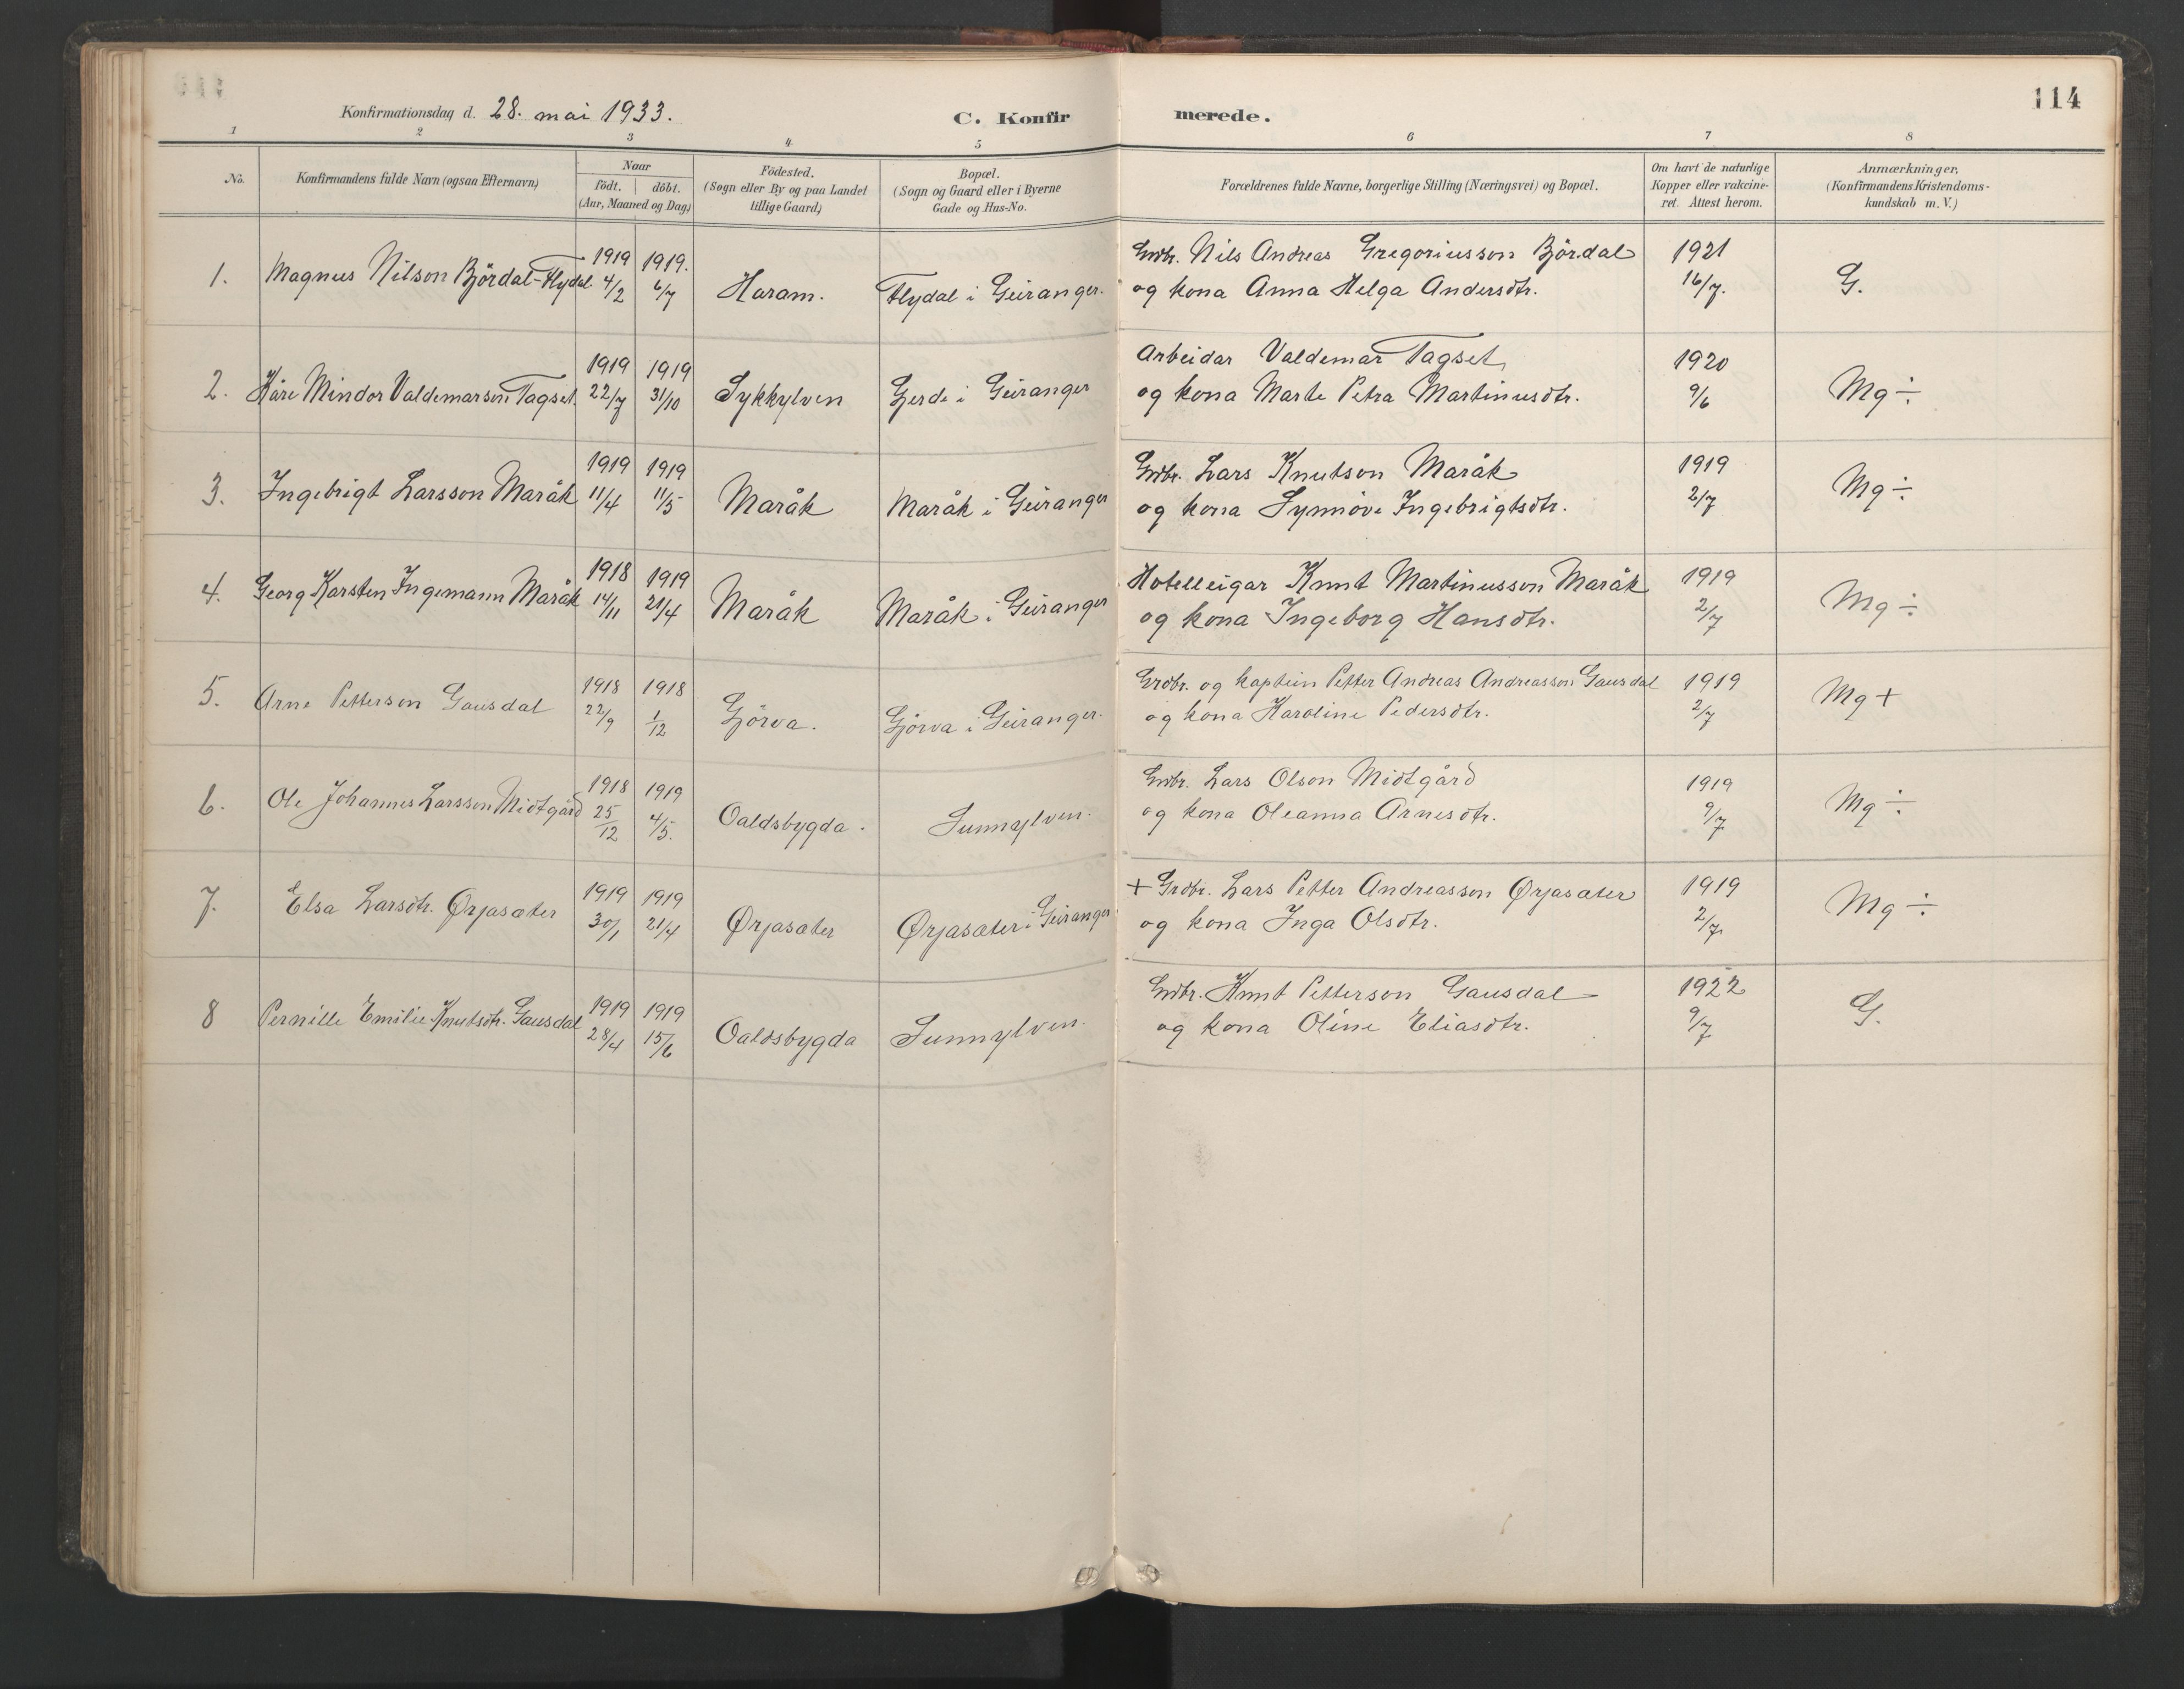 Konfirmationsdag d. 28. mai 1933.
C. Konfirmerede.
114
1 2 3 4 5 6 7 8
No.
Konfirmandens fulde Navn (ogsaa Efternavn)
Naar
födt. döbt.
(Aar, Maaned og Dag)
Födested.
(Sogn eller By og paa Landet
tillige Gaard)
Bopæl.
(Sogn og Gaard eller i Byerne
Gade og Hus-No.
Forældrenes fulde Navne, borgerlige Stilling (Næringsvei) og Bopæl.
Om havt de naturlige
Kopper eller vakcine-
ret. Attest herom.
Anmærkninger,
(Konfirmandens Kristendoms-
kundskab m. V.)
1. Magnus Nilson Björdal-Flydal 1919 4/2 1919. 6/7 Haram. Flydal i Geiranger. Grdbr. Nils Andreas Gregoriusson Bjørdal 1921 G.
og kona Anna Helga Andersdtr. 16/7.
2. Kåre Mindor Valdemarson Tagset. 1919 22/7 1919 31/10 Sykkylven Gjerde i Geiranger Arbeidar Valdemar Tagset 1920 Mg ÷
og kona Marte Petra Martinusdtr. 9/6
3. Ingebrigt Larsson Maråk 1919 11/4 1919 11/5 Maråk Maråk i Geiranger Grdbr. Lars Knutson Maråk 1919 Mg ÷
og kona Synnöve Ingebrigtsdtr. 2/7
4. Georg Karsten Ingemann Maråk 1918 14/11 1919 21/4 Maråk Maråk i Geiranger Hotelleigar Knut Martinusson Maråk 1919 Mg ÷
og kona Ingeborg Hansdtr. 2/7
5. Arne Petterson Gausdal 1918 22/9 1918 1/12 Gjörva. Gjörva i Geiranger. Grdbr. og kaptein Petter Andreas Andreasson Gausdal 1919 Mg +
og kona Karoline Pedersdtr. 2/7
6. Ole Johannes Larsson Midtgård 1918 25/12 1919 4/5. Oaldsbygda. Sunnylven. Grdbr. Lars Olson Midtgård 1919 Mg ÷
og kona Oleanna Arnesdtr. 9/7
7. Elsa Larsdtr. Ørjasæter 1919 30/1 1919 21/4 Ørjasæter Ørjasæter i Geiranger + Grdbr. Lars Petter Andreasson Ørjasæter 1919 Mg ÷
og kona Inga Olsdtr. 2/7
8 Pernille Emilie Knutsdtr. Gausdal 1919 28/4 1919 15/6 Oaldsbygda Sunnylven. Grdbr. Knut Petterson Gausdal 1922 G.
og kona Oline Eliasdtr. 9/7